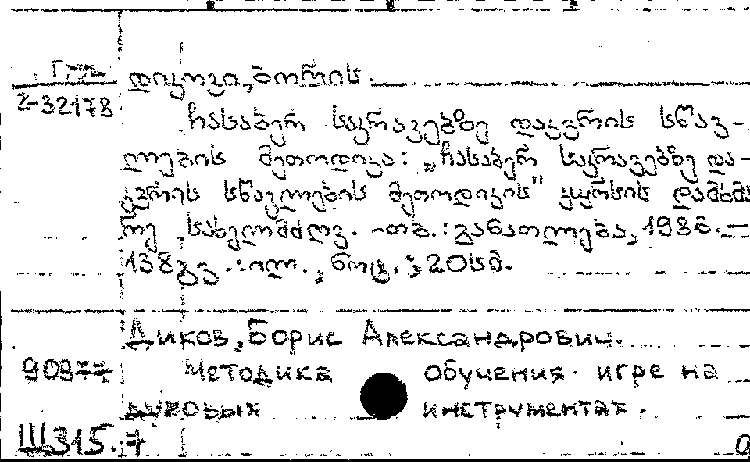 დიკოვი, ბორის.
2-32178
ჩასაბერ საკრავებზე დაკვრის სწავ-
ლების მეთოდიკა: „ჩასაბერ საკრავებზე და-
კვრის სწავლების მეთოდიკის" კურსის დამხმა
რე სახელმძღვ. -თბ.: განათლება, 1986.—
138გვ.: ილ., ნოტ.; 20სმ.
Диков, Борис Александрович.
90977 Методика обучения игре на
духовых инструментах.
III 315.7